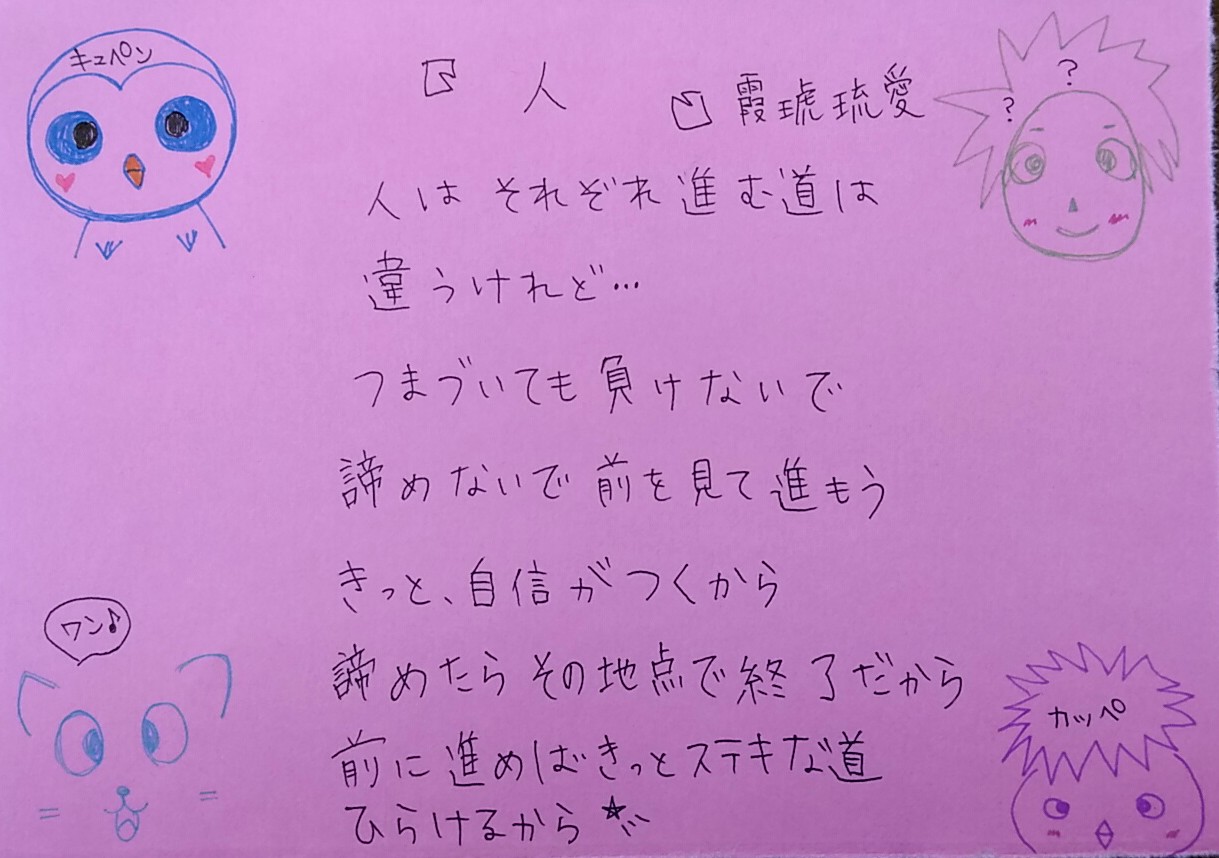 キュペン
人
霞琥琉愛
? ?
人は それぞれ 進む道は
違うけれど…
つまづいても 負けないで
諦めないで 前を見て進もう
きっと、自信がつくから
ワン♪
諦めたら その地点で終了だから
カッペ
前に進めばきっとステキな道
ひらけるから☆彡